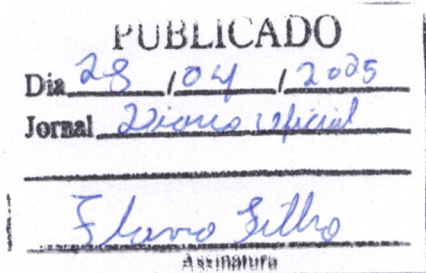 PUBLICADO
Dia 28 / 04 / 2025
Jornal Diário Oficial
Flavio Filho
Assinatura